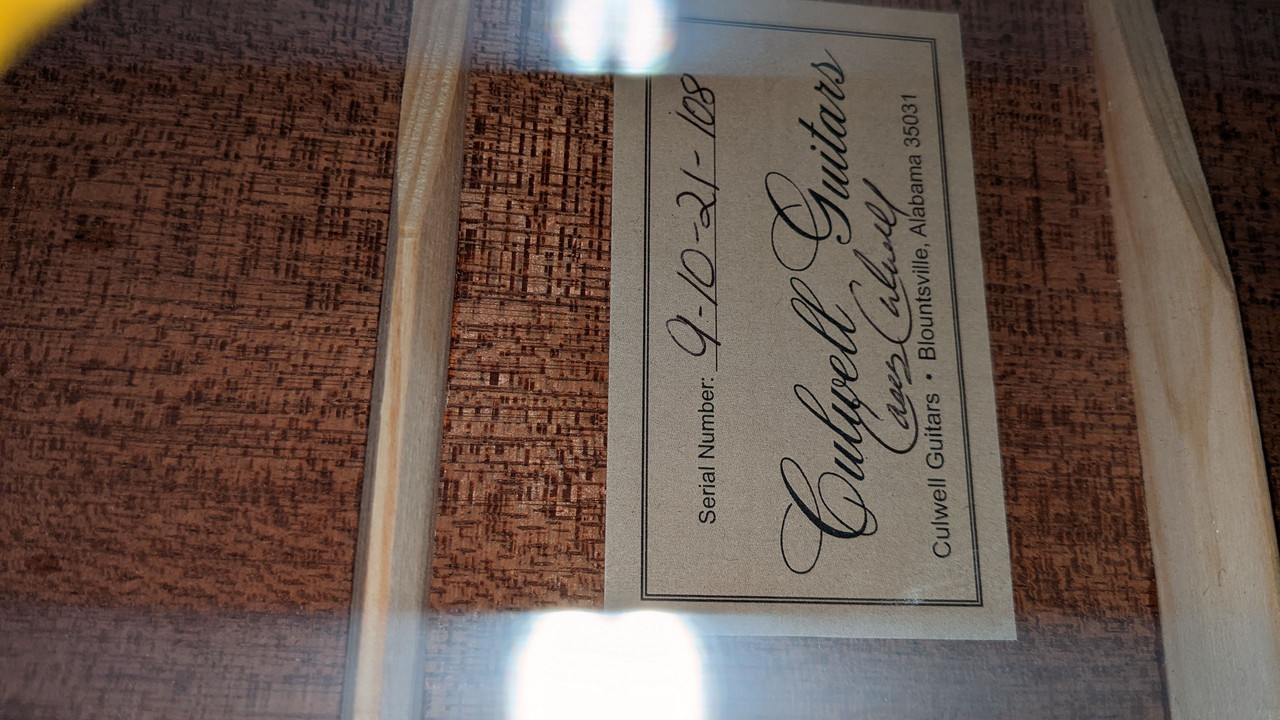 Serial Number: 9-10-21-108
Culwell Guitars
Casey Culwell
Culwell Guitars • Blountsville, Alabama 35031